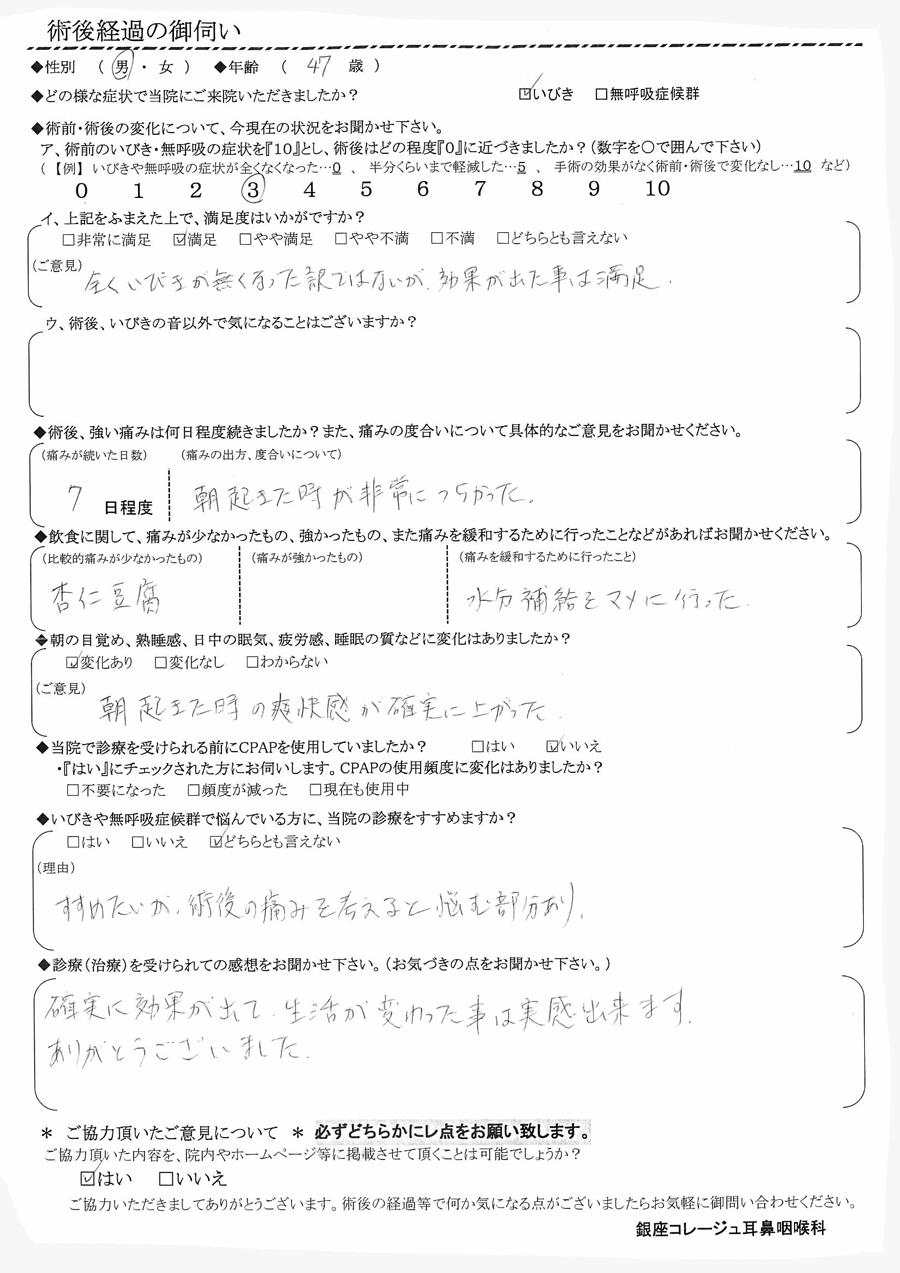 術後経過の御伺い
◆性別 ( 男 ・ 女 ) ◆年齢 ( 47 歳 )
◆どの様な症状で当院にご来院いただきましたか? ☑いびき □無呼吸症候群
◆術前・術後の変化について、今現在の状況をお聞かせ下さい。
ア、術前のいびき・無呼吸の症状を『10』とし、術後はどの程度『0』に近づきましたか?(数字を〇で囲んで下さい)
(【例】いびきや無呼吸の症状が全くなくなった…0 、 半分くらいまで軽減した…5 、 手術の効果がなく術前・術後で変化なし…10 など)
0 1 2 3 4 5 6 7 8 9 10
イ、上記をふまえた上で、満足度はいかがですか?
□非常に満足 ☑満足 □やや満足 □やや不満 □不満 □どちらとも言えない
(ご意見)
全くいびきが無くなった訳ではないが、効果が出た事は満足.
ウ、術後、いびきの音以外で気になることはございますか?
◆術後、強い痛みは何日程度続きましたか?また、痛みの度合いについて具体的なご意見をお聞かせください。
(痛みが続いた日数) (痛みの出方、度合いについて)
7 日程度 朝起きた時が非常につらかった.
◆飲食に関して、痛みが少なかったもの、強かったもの、また痛みを緩和するために行ったことなどがあればお聞かせください。
(比較的痛みが少なかったもの) (痛みが強かったもの) (痛みを緩和するために行ったこと)
杏仁豆腐 水分補給をマメに行った.
◆朝の目覚め、熟睡感、日中の眠気、疲労感、睡眠の質などに変化はありましたか?
☑変化あり □変化なし □わからない
(ご意見)
朝起きた時の爽快感が確実に上がった.
◆当院で診療を受けられる前にCPAPを使用していましたか? □はい ☑いいえ
・『はい』にチェックされた方にお伺いします。CPAPの使用頻度に変化はありましたか?
□不要になった □頻度が減った □現在も使用中
◆いびきや無呼吸症候群で悩んでいる方に、当院の診療をすすめますか?
□はい □いいえ ☑どちらとも言えない
(理由)
すすめたいが、術後の痛みを考えると悩む部分あり.
◆診療(治療)を受けられての感想をお聞かせ下さい。(お気づきの点をお聞かせ下さい。)
確実に効果が出て、生活が変わった事は実感出来ます.
ありがとうございました.
＊ ご協力頂いたご意見について ＊ 必ずどちらかにレ点をお願い致します。
ご協力頂いた内容を、院内やホームページ等に掲載させて頂くことは可能でしょうか?
☑はい □いいえ
ご協力いただきましてありがとうございます。術後の経過等で何か気になる点がございましたらお気軽に御問い合わせください。
銀座コレージュ耳鼻咽喉科